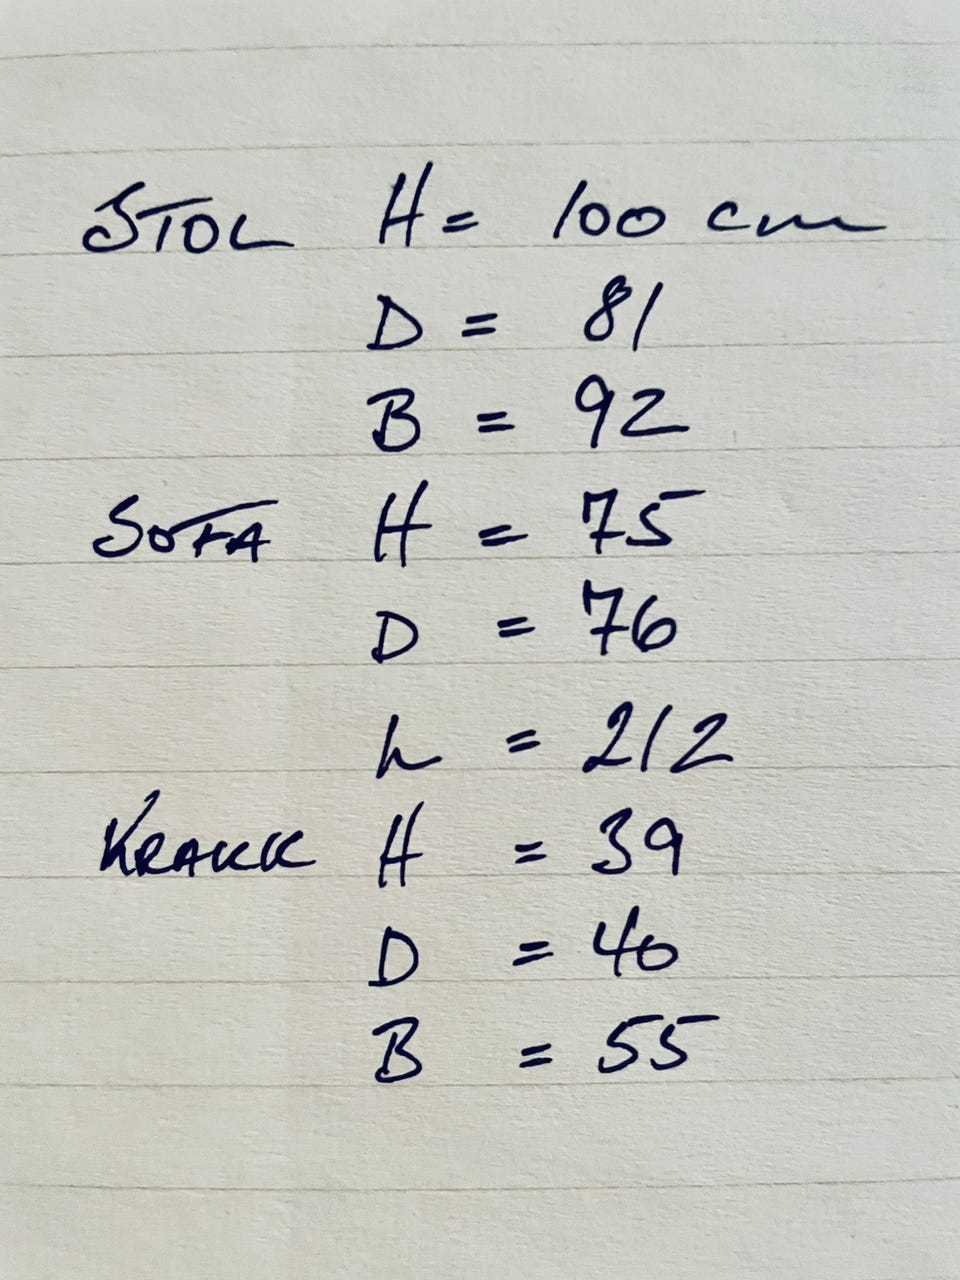 STOL H = 100 cm
D = 81
B = 92
SOFA H = 75
D = 76
L = 212
KRAKK H = 39
D = 40
B = 55